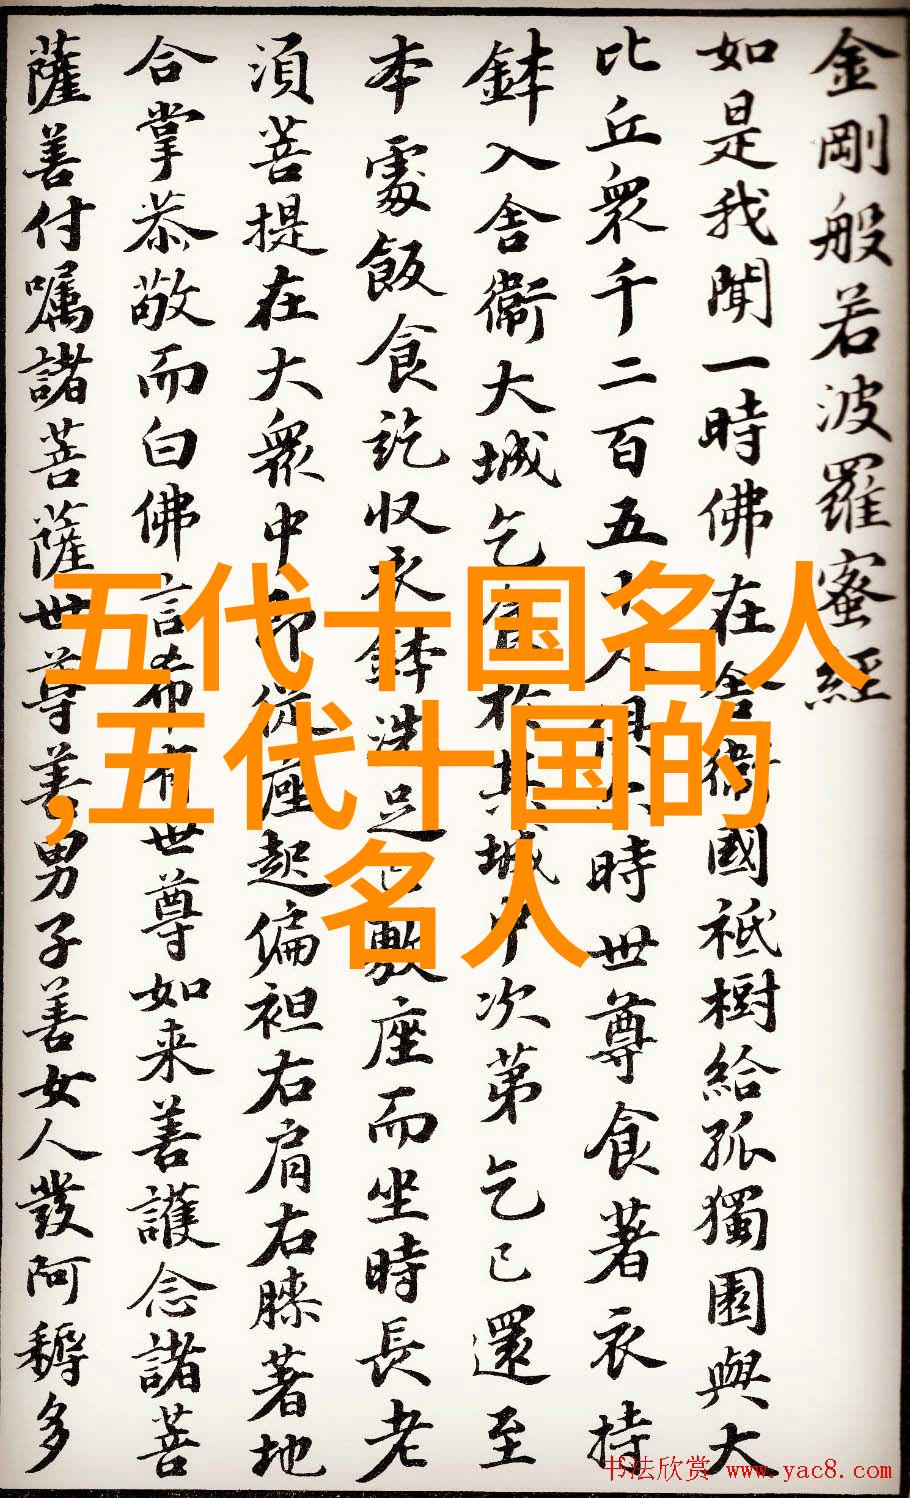 金剛般若波羅蜜經
如是我聞一時佛在舍衞國祇樹給孤獨園與大
比丘衆千二百五十人俱尒時世尊食著衣持
鉢入舍衞大城乞食於其城中次第乞已還至
本處飯食訖収衣鉢洗足已敷座而坐時長老
須菩提在大衆中即從座起偏袒右肩右膝著地
合掌恭敬而白佛言希有世尊如来善護念諸菩
薩善付嘱諸菩薩世尊善男子善女人發阿耨多
五代十国名人
,五代十国的
名人
书法欣赏 www.yac8.com